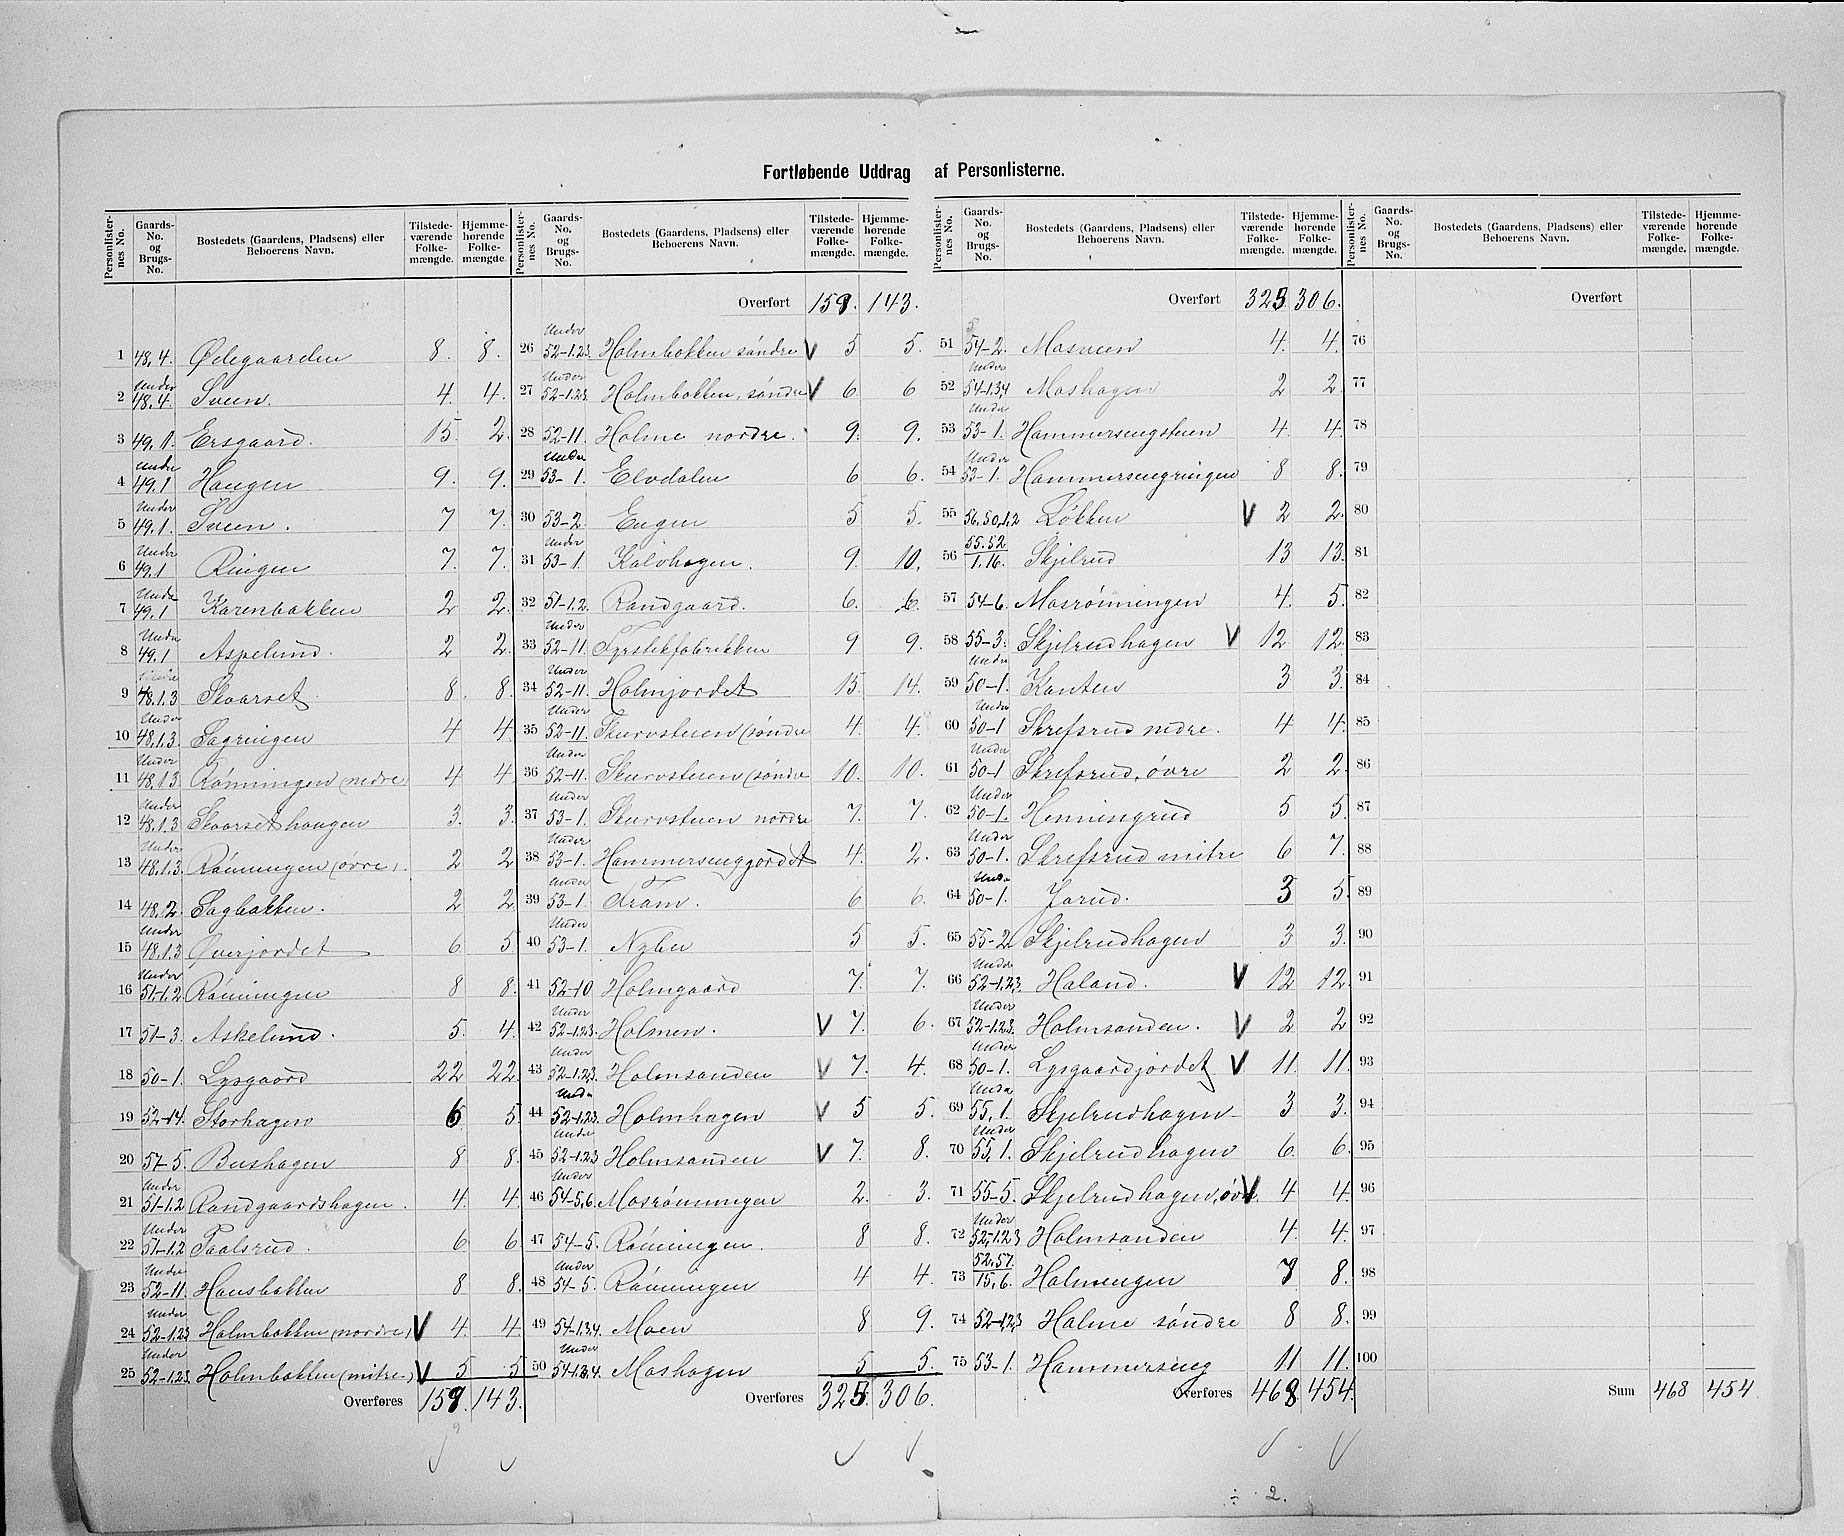 Fortløbende Uddrag af Personlisterne.
Personlisternes No. Gaards-No. og Brugs-No. Bostedets (Gaardens, Pladsens) eller Beboerens Navn. Tilstedeværende Folkemængde. Hjemmehørende Folkemængde.
1 48.4. Ødegaarden 8. 8.
2 Under 48.4. Sveen. 4. 4.
3 49.1. Ersgaard. 15. 2.
4 Under 49.1 Haugen 9. 9.
5 Under 49.1. Sveen. 7 7.
6 Under 49.1 Ringen 7. 7.
7 Under 49.1 Karenbakken 2 2.
8 Under 49.1 Aspelund. 2 2.
9 Under 48.1.3 Skaarset. 8. 8.
10 Under 48.1.3. Sagringen 4 4.
11 Under 48.1.3 Rønningen (nedre) 4 4.
12 Under 48.1.3 Skaarsethaugen 3. 3.
13 Under 48.1.3. Rønningen (øvre). 2 2
14 48.2. Sagbakken. 2 2
15 Under 48.1.3 Øverjordet 6 5
16 Under 51-1.2. Rønningen 8 8.
17 51-3. Askelund. 5. 4.
18 50-1. Lysgaard 22 22.
19 52-14. Storhagen 6 5.
20 57-5. Bushagen 8 8.
21 Under 51-1.2 Randgaardshagen. 4. 4.
22 Under 51-1.2 Taalsrud. 6 6.
23 Under 52-11. Hansbakken 8 8.
24 Under 52-1.2.3. Holmbakken (nordre) V 4. 4
25 Under 52-1.2.3. Holmbakken (mitre) V 5 5
Overføres 159. 143.
Personlisternes No. Gaards-No. og Brugs-No. Bostedets (Gaardens, Pladsens) eller Beboerens Navn. Tilstedeværende Folkemængde. Hjemmehørende Folkemængde.
Overført 159. 143.
26 Under 52-1.2.3. Holmbakken søndre V 5 5.
27 Under 52-1.2.3. Holmbakken, søndre V 6 6
28 52-11. Holme nordre. 9. 9.
29 Under 53-1. Elvdalen 6 6.
30 53-2. Engen 5 5.
31 Under 53-1. Kalvhagen. 9. 10.
32 51-1.2. Randgaard. 6. 6.
33 Under 52-11. Fyrstikfabrikken 9 9.
34 Under 52-11. Holmjordet 15. 14.
35 Under 52-11. Skurvstuen (søndre 4. 4.
36 Under 52-11. Skurvstuen (søndre 10. 10.
37 Under 53-1. Skurvstuen nordre 7. 7.
38 Under 53-1. Hammersengjordet 4. 2.
39 Under 53-1. Fram. 6 6.
40 Under 53-1. Nyber 5 5.
41 52-10 Holmgaard 7. 7.
42 Under 52-1.2.3. Holmen. V 7. 6.
43 Under 52-1.2.3. Holmsanden V 7. 4.
44 Under 52-1.2.3. Holmhagen V 5 5.
45 Under 52-1.2.3 Holmsanden V 7. 8.
46 Under 54-5.6. Mosrønningen 2. 3.
47 54-5. Rønningen. 8 8.
48 Under 54-5. Rønningen 4 4.
49 54-1.3.4. Moen 8 9.
50 Under 54-1.3.4. Moshagen 5 5.
Overføres 325. 306.
Personlisternes No. Gaards-No. og Brugs-No. Bostedets (Gaardens, Pladsens) eller Beboerens Navn. Tilstedeværende Folkemængde. Hjemmehørende Folkemængde.
Overført 325 306.
51 54-2. Mosveen 4. 4.
52 Under 54-1.3.4 Moshagen 2 2.
53 Under 53-1. Hammersengstuen 4. 4.
54 Under 53-1. Hammersengringen 8 8.
55 56.50.1.2 Løkken V 2 2.
56 55.52 1.16. Skjelrud 13 13.
57 54-6. Mosrønningen 4. 5.
58 55-3. Skjelrudhagen V 12 12.
59 Under 50-1. Kanten 3 3.
60 Under 50-1 Skrefsrud nedre. 4 4.
61 Under 50-1 Skrefsrud, øvre 2 2.
62 Under 50-1. Henningrud 5 5.
63 Under 50-1. Skrefsrud mitre 6 7.
64 Under 50-1. Jorud. 3 5.
65 55-2. Skjelrudhagen 3 3.
66 Under 52-1.2.3. Haland. V 12 12.
67 Under 52-1.2.3. Holmsanden. V 2 2
68 Under 50-1. Lysgaardjordet V 11 11.
69 Under 55.1. Skjelrudhagen 3 3.
70 Under 55.1. Skjelrudhagen 6. 6.
71 55-5. Skjelrudhagen, øvre V 4 4.
72 Under 52-1.2.3 Holmsanden 4. 4.
73 52.57. 15.6. Holmengen 7 8.
74 52-1.2.3 Holme søndre 8 8.
75 53-1. Hammerseng 11 11.
Overføres 468 454.
Personlisternes No. Gaards-No. og Brugs-No. Bostedets (Gaardens, Pladsens) eller Beboerens Navn. Tilstedeværende Folkemængde. Hjemmehørende Folkemængde.
Overført
76
77
78
79
80
81
82
83
84
85
86
87
88
89
90
91
92
93
94
95
96
97
98
99
100
Sum 468 454.
÷ 2.